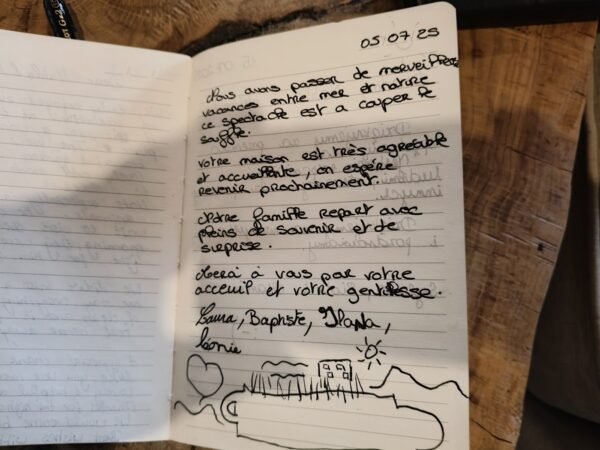 05 07 25
Nous avons passer de merveilleuse
vacances entre mer et nature
ce spectacle est a couper le
souffle.
votre maison est très agréable
et accueillante, on espère
revenir prochainement.
Notre famille repart avec
pleins de souvenir et de
surprise.
Merci à vous par votre
acceuil et votre gentillesse.
Laura, Baptiste, Ilana,
Léonie